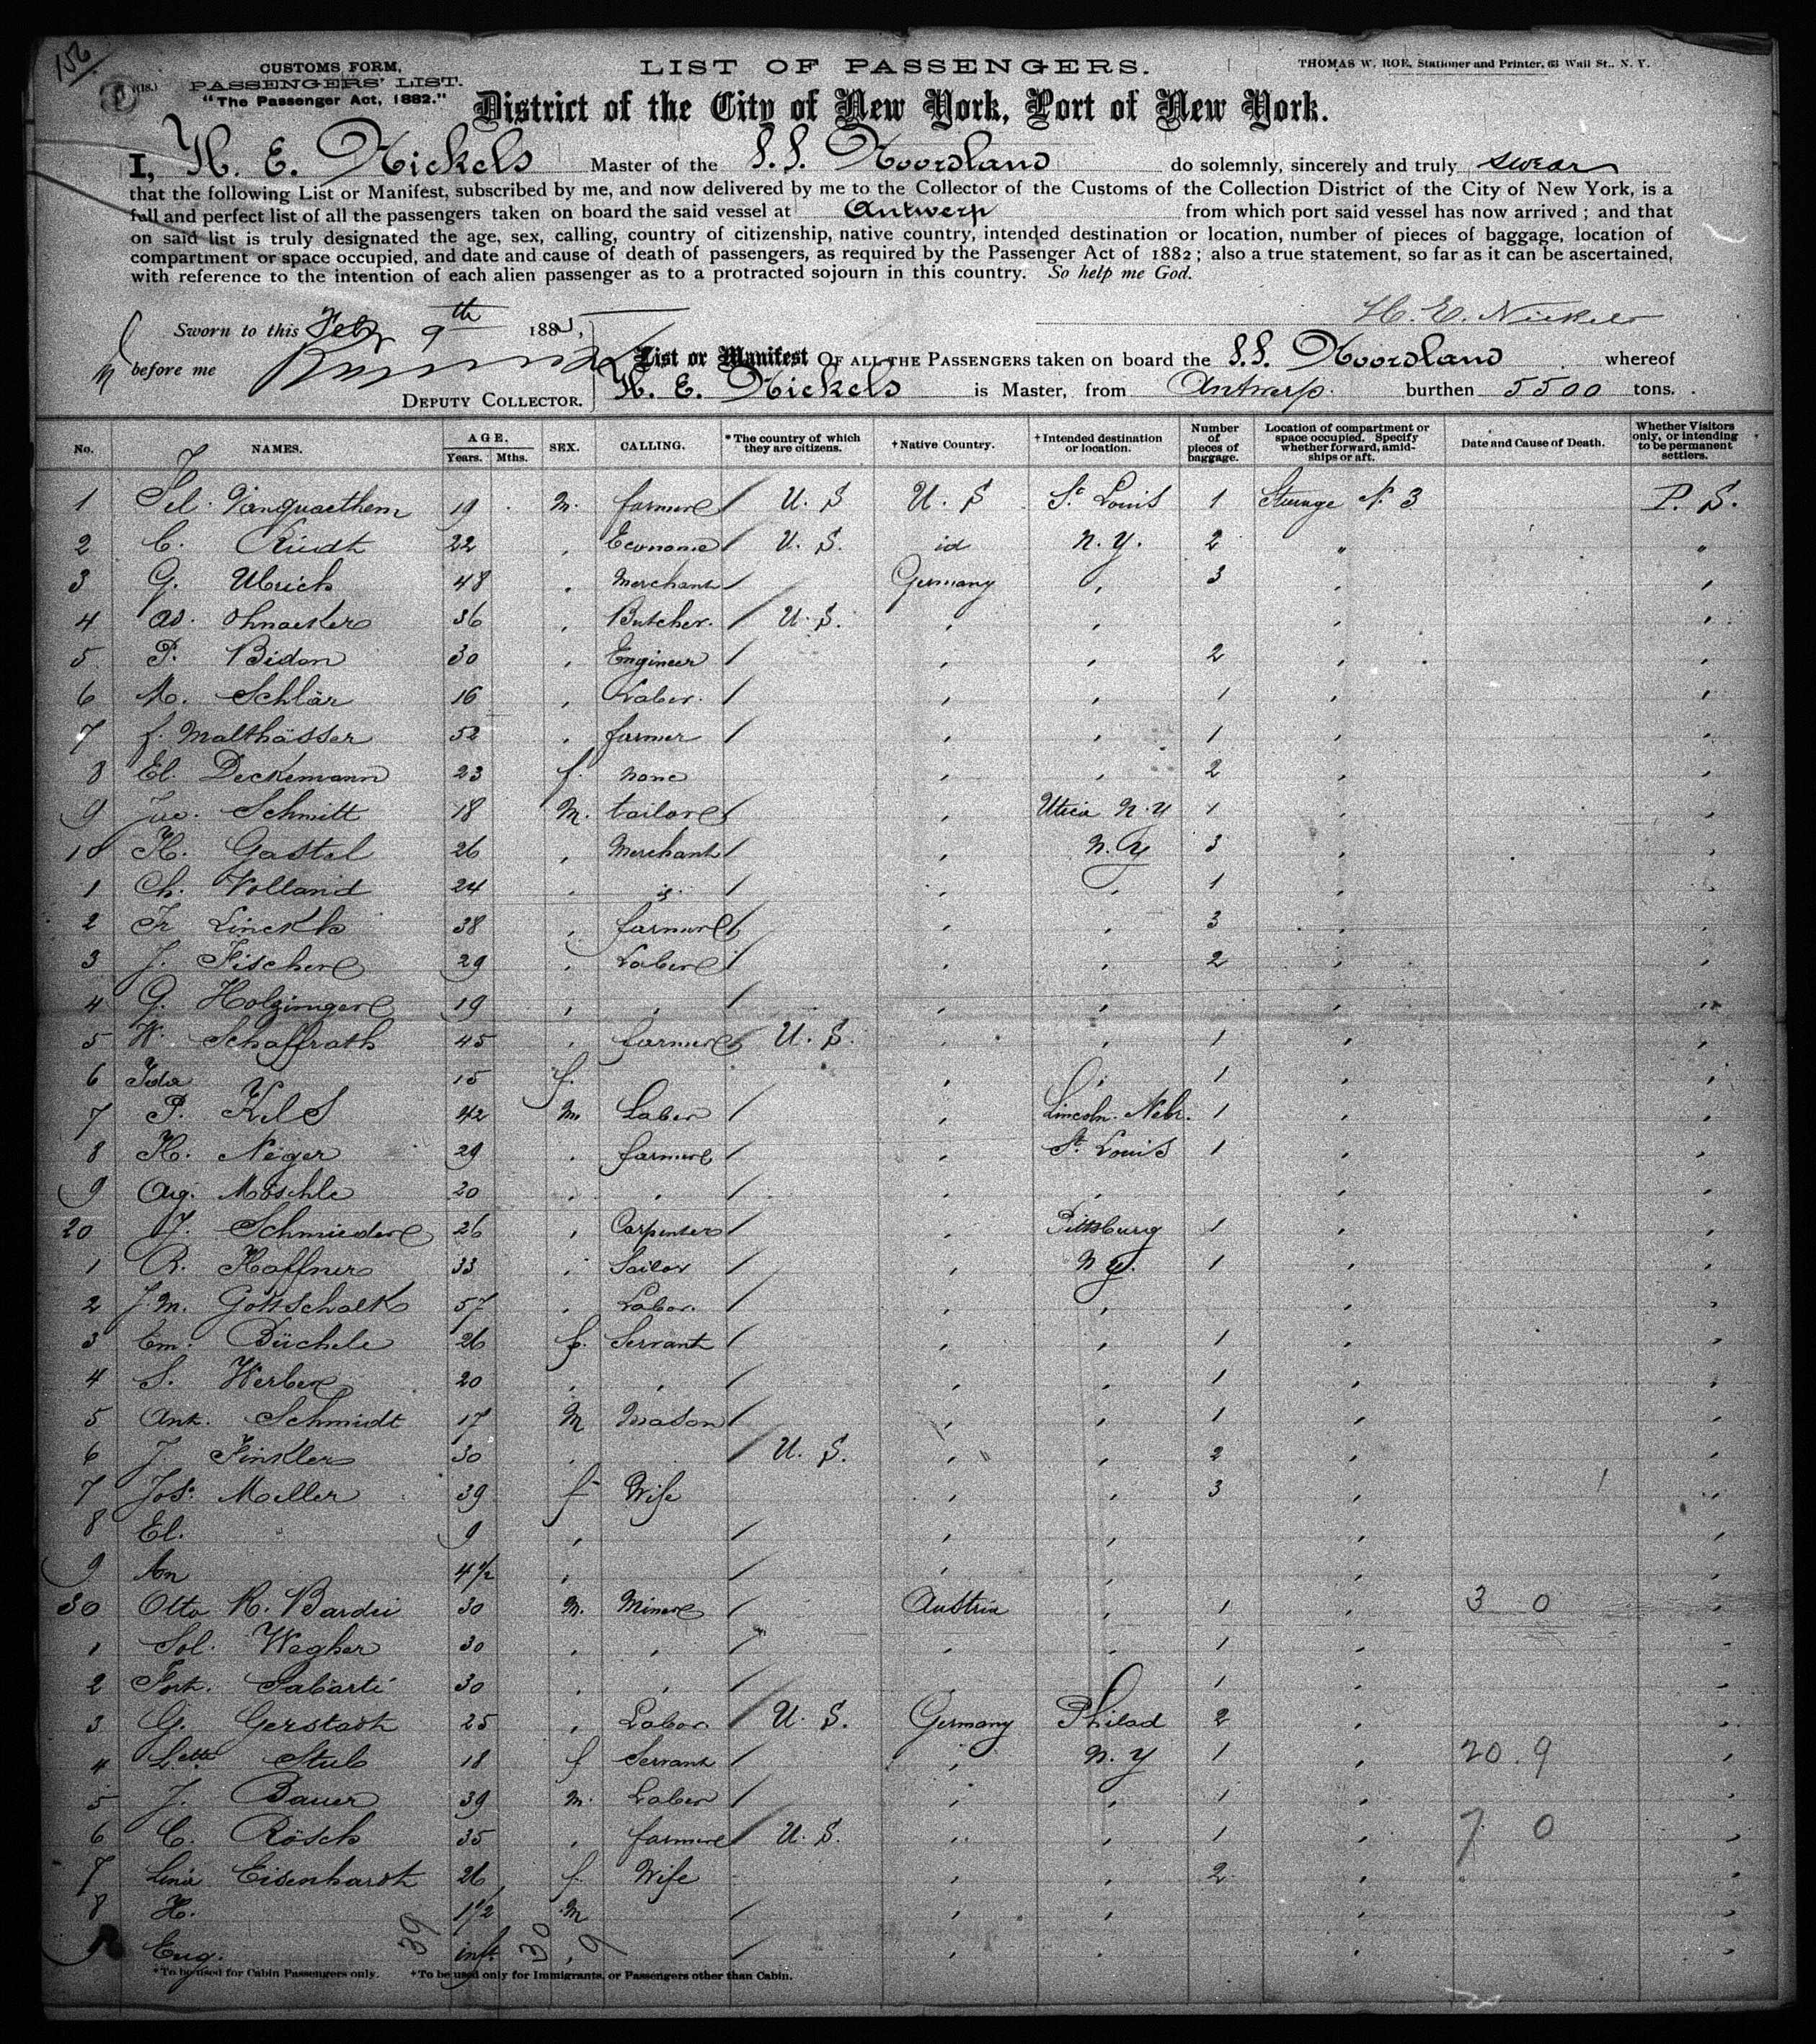 156
(118.)
CUSTOMS FORM,
PASSENGERS' LIST.
"The Passenger Act, 1882."
LIST OF PASSENGERS.
THOMAS W. ROE, Stationer and Printer, 63 Wall St., N. Y.
District of the City of New York, Port of New York.
I, H. E. Nickels Master of the S.S. Noordland do solemnly, sincerely and truly swear
that the following List or Manifest, subscribed by me, and now delivered by me to the Collector of the Customs of the Collection District of the City of New York, is a
full and perfect list of all the passengers taken on board the said vessel at Antwerp from which port said vessel has now arrived; and that
on said list is truly designated the age, sex, calling, country of citizenship, native country, intended destination or location, number of pieces of baggage, location of
compartment or space occupied, and date and cause of death of passengers, as required by the Passenger Act of 1882; also a true statement, so far as it can be ascertained,
with reference to the intention of each alien passenger as to a protracted sojourn in this country. So help me God.
H. E. Nickels
Sworn to this Feb 9th 1885,
before me
DEPUTY COLLECTOR.
List or Manifest OF ALL THE PASSENGERS taken on board the S.S. Noordland whereof
H. E. Nickels is Master, from Antwerp burthen 5500 tons.
No. NAMES. AGE. Years. Mths. SEX. CALLING. *The country of which they are citizens. †Native Country. †Intended destination or location. Number of pieces of baggage. Location of compartment or space occupied. Specify whether forward, amidships or aft. Date and Cause of Death. Whether Visitors only, or intending to be permanent settlers.
1 Fel. Vanquaethem 19 M. farmer / U. S U. S St Louis 1 Steerage No 3 P. S.
2 C. Riedt 22 , Econome / U. S. id N. Y. 2 " "
3 G. Ulrich 48 , Merchant / Germany , 3 , ,
4 Ad. Ohnacker 36 , Butcher. / U. S. , , , ,
5 P. Bidon 30 , Engineer / , , 2 , ,
6 M. Schlär 16 , Labor. / , , 1 , ,
7 f. Malthässer 52 , farmer / , , 1 , ,
8 El. Deckemann 23 f. none , , 2 , ,
9 Jac. Schmitt 18 M. tailor / , Utica N. Y 1 , ,
10 H. Gastel 26 , Merchant / , N. Y 3 , ,
1 Ch. Volland 24 , id. / , , 1 , ,
2 Fr Linckh 38 , farmer / , , 3 , ,
3 J. Fischer 29 , Labor / , , 2 , ,
4 G. Holzinger 19 , , / , , , ,
5 W. Schaffrath 45 , farmer / U. S. , , 1 , ,
6 Ida 15 f. , , 1 , ,
7 P. Kels 42 M Labor / , Lincoln. Nebr. 1 , ,
8 H. Neger 29 , farmer / , St. Louis 1 , ,
9 Aug. Möschle 20 , , / , , , ,
20 J. Schmieder 26 , Carpenter / , Pittsburg 1 , ,
1 R. Haffner 33 , Sailor / , N Y. 1 , ,
2 J. M. Gottschalk 57 , Labor. / , , , ,
3 Em. Büchele 26 f. Servant / , , 1 , ,
4 S. Werber 20 , , / , , 1 , ,
5 Ant. Schmidt 17 M Mason / , , 1 , ,
6 J. Finkler 30 , / U. S. , , 2 , ,
7 Jos. Meller 39 f Wife , , 3 , ,
8 El. 9 , / , , , ,
9 An 4 1/2 , / , , , ,
30 Otto R. Bardii 30 M. Miner / Austria , 1 , 3 0 ,
1 Sol. Wegher 30 , , / , , 1 , ,
2 Fort. Sabarti 30 , , / , , 1 , ,
3 G. Gerstadt 25 , Labor. / U. S. Germany Philad 2 , ,
4 Lette Stub 18 f Servant / , N. Y 1 , 20. 9 ,
5 J. Bauer 39 M. Labor / , , 1 , ,
6 C. Rösch 35 , farmer / U. S. , , 1 , 7 0 ,
7 Lina Eisenhardt 26 f. Wife , , 2 , ,
8 H. 1 1/2 M / , , , ,
9 Eug. inft. , / , , , ,
39 30 9
*To be used for Cabin Passengers only. †To be used only for Immigrants, or Passengers other than Cabin.